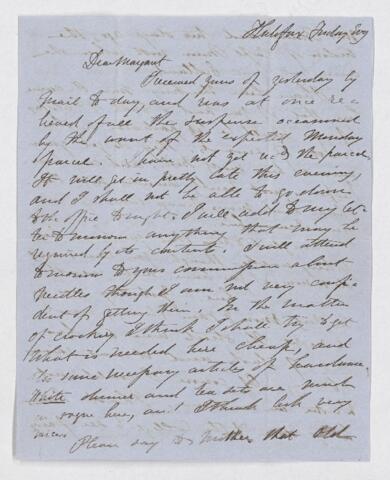 Halifax Friday Evg
Dear Margaret
Received yours of yesterday by
mail to day, and was at once re=
lieved of all the suspense occasioned
by the want of the expected Monday
parcel. I have not yet recd the parcel.
It will get in pretty late this evening,
and I shall not be able to go down
to the office to night. I will add to my let-
ter to morrow anything that may be
required by its contents. I will attend
to morrow to your commission about
needles though I am not very confi-
dent of getting them. In the matter
of crockery I think I shall try to get
what is needed here cheap, and
also some necessary articles of hardware.
White dinner and tea sets are much
in vogue here, and I think look very
nice.
Please say to Mother that Old